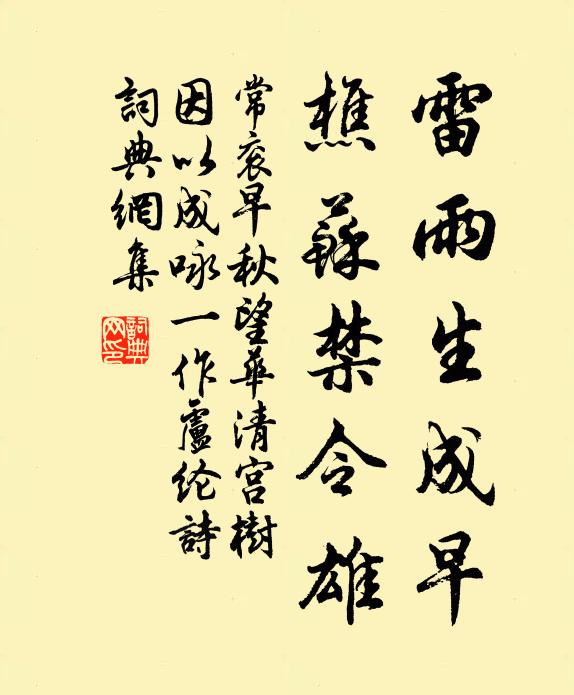 雷雨生成早
樵蘇禁令雄
常衮早秋望華清宮樹
因以成咏一作盧纶詩
詞典網集
詞典网印